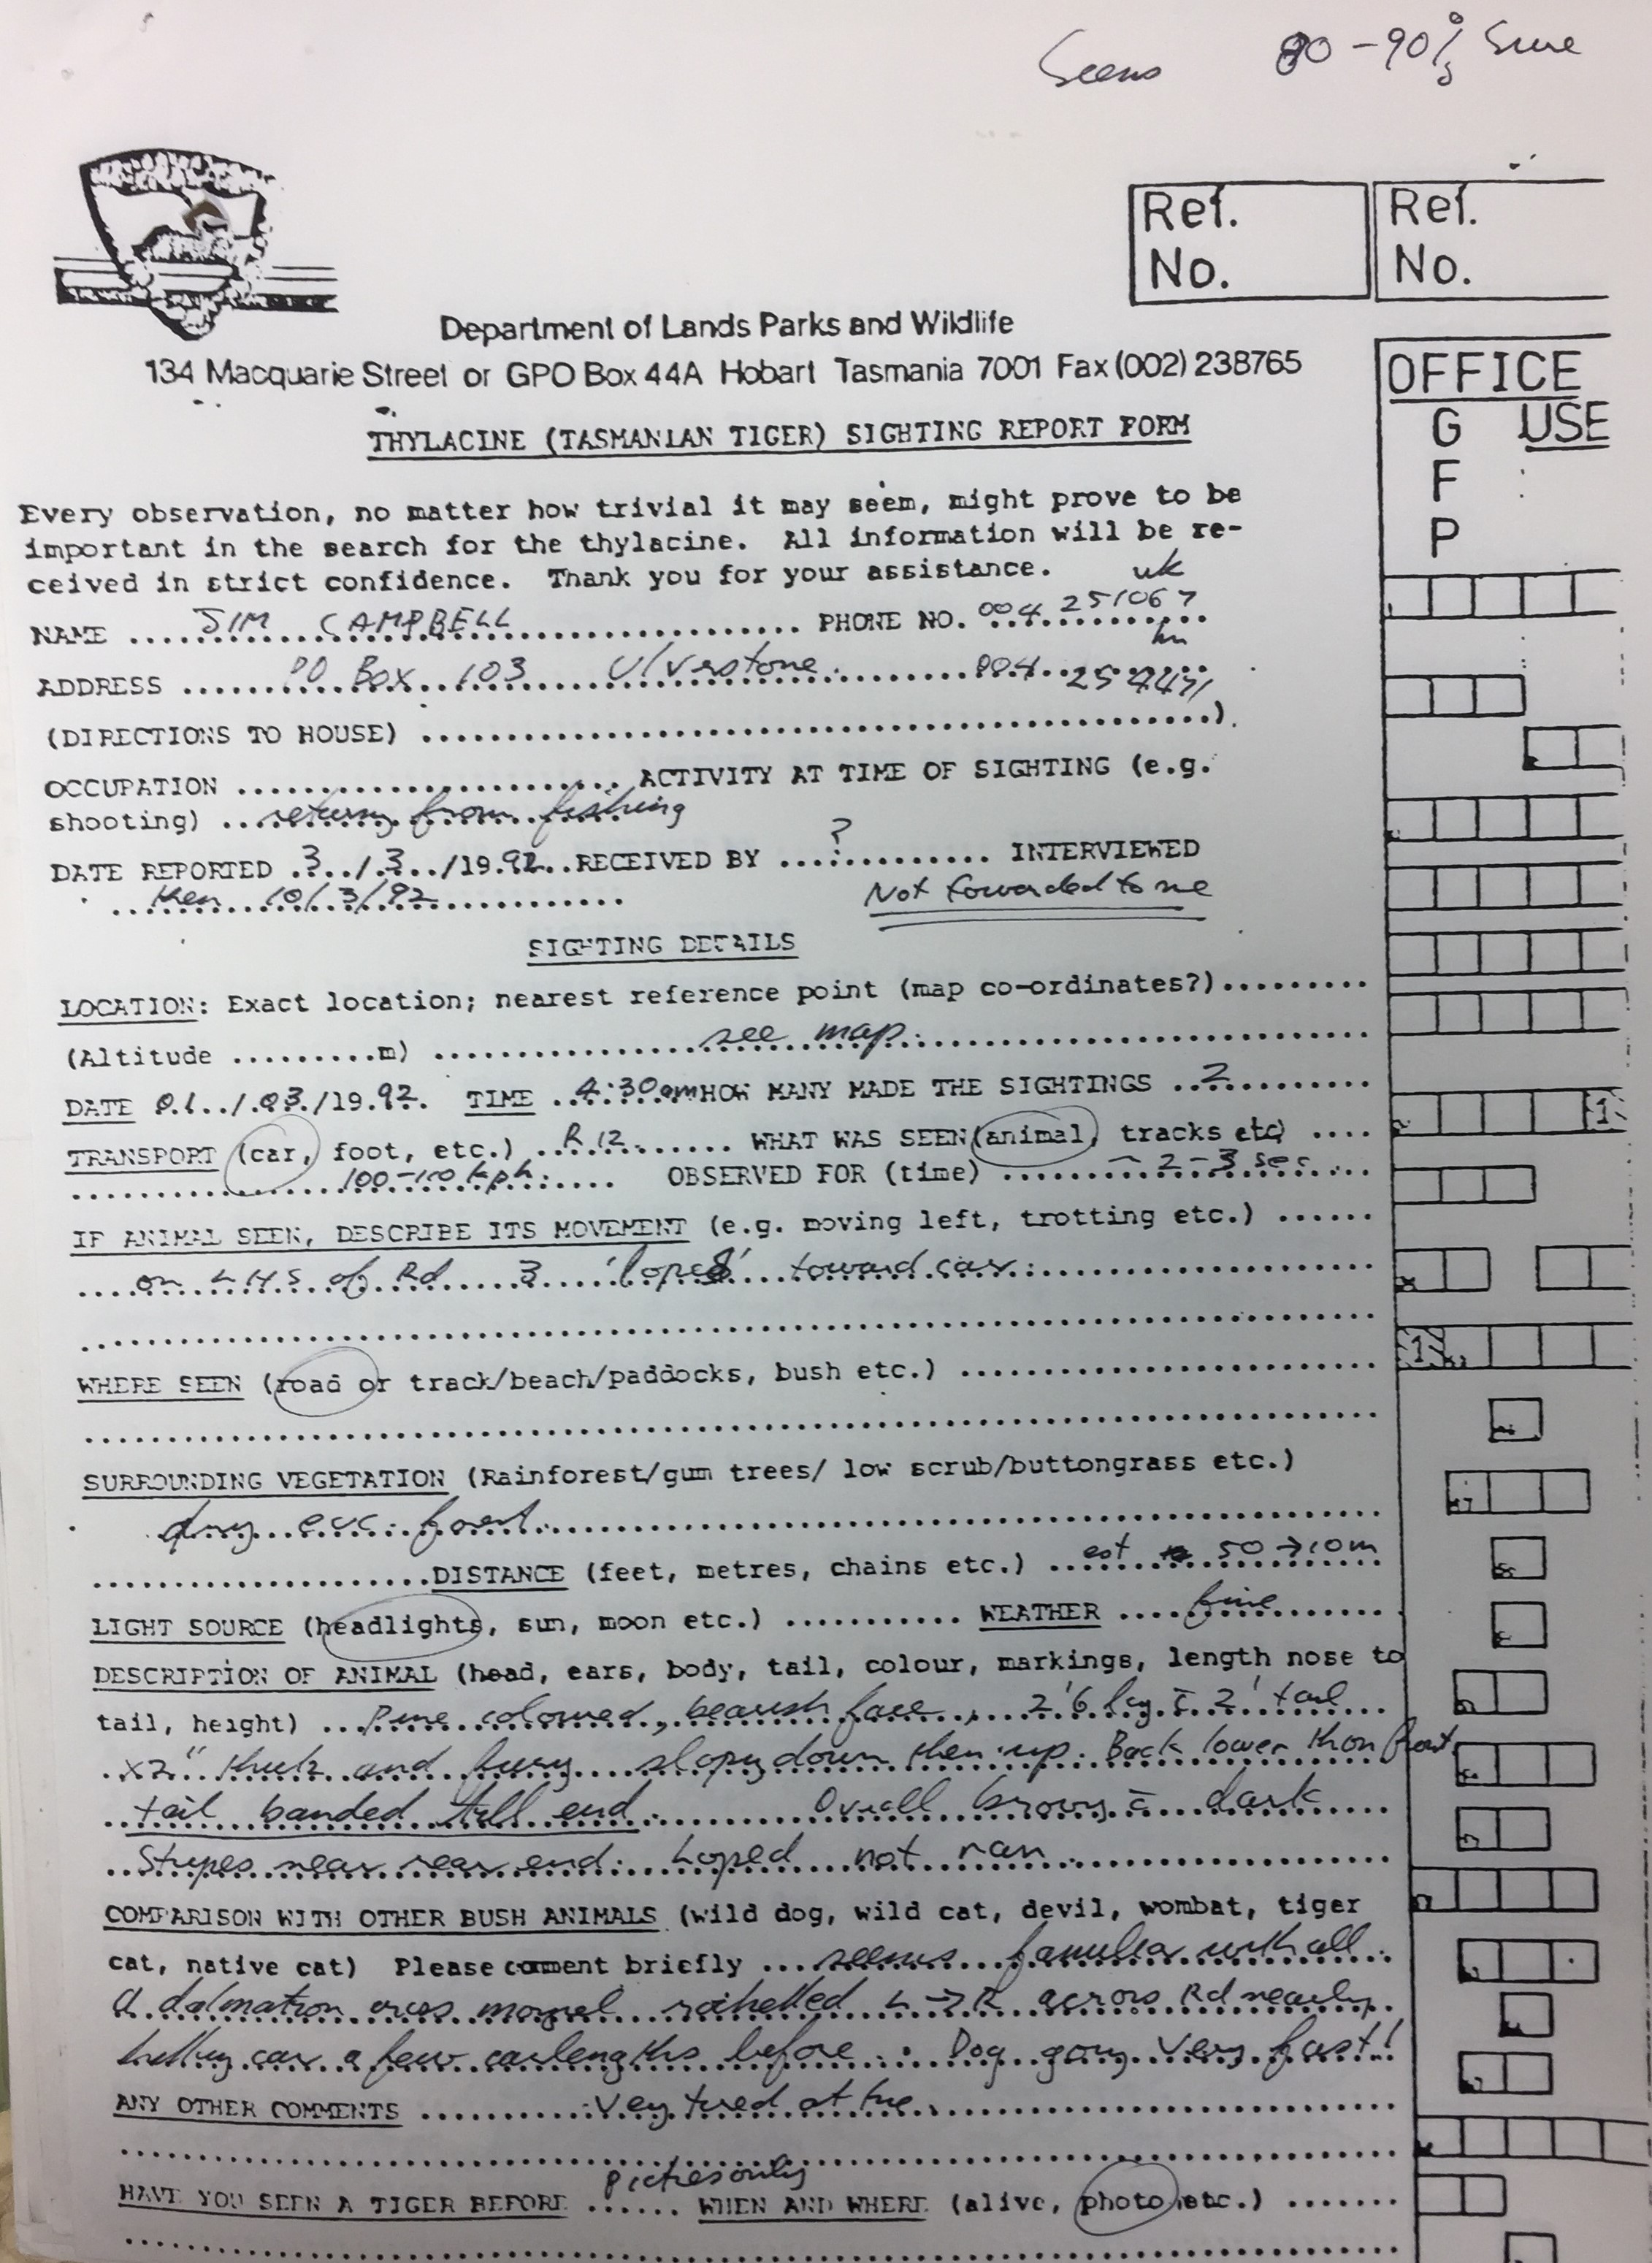 Seems 80-90% Sure
Ref. No.
Ref. No.
Department of Lands Parks and Wildlife
134 Macquarie Street or GPO Box 44A Hobart Tasmania 7001 Fax (002) 238765
OFFICE USE
G
F
P
THYLACINE (TASMANIAN TIGER) SIGHTING REPORT FORM
Every observation, no matter how trivial it may seem, might prove to be
important in the search for the thylacine. All information will be re-
ceived in strict confidence. Thank you for your assistance.
wk
NAME JIM CAMPBELL PHONE NO. 004 251067
hm
ADDRESS PO Box 103 Ulverstone. 004
(DIRECTIONS TO HOUSE) ).
OCCUPATION ACTIVITY AT TIME OF SIGHTING (e.g.
shooting) return from fishing
DATE REPORTED 3/3/1992 RECEIVED BY ? INTERVIEWED
then 10/3/92 Not forwarded to me
SIGHTING DETAILS
LOCATION: Exact location; nearest reference point (map co-ordinates?)
(Altitude m) see map.
DATE 01/03/1992. TIME 4:30am HOW MANY MADE THE SIGHTINGS 2
TRANSPORT (car, foot, etc.) R12. WHAT WAS SEEN (animal, tracks etc)
100-110 kph. OBSERVED FOR (time) ~ 2-3 sec
IF ANIMAL SEEN, DESCRIBE ITS MOVEMENT (e.g. moving left, trotting etc.)
on LHS of Rd 3 'lopes' toward car.
WHERE SEEN (road or track/beach/paddocks, bush etc.)
1
1
SURROUNDING VEGETATION (Rainforest/gum trees/ low scrub/buttongrass etc.)
dry euc. forest.
DISTANCE (feet, metres, chains etc.) est 50→10m
LIGHT SOURCE (headlights, sun, moon etc.) WEATHER fine
DESCRIPTION OF ANIMAL (head, ears, body, tail, colour, markings, length nose to
tail, height) coloured, bearish face, 2'6 c̄ 2' tail
x2" thick and furry sloping down then up. Back lower than front,
tail banded till end. Overall brown c̄ dark
Stripes near rear end. Loped not ran.
COMPARISON WITH OTHER BUSH ANIMALS (wild dog, wild cat, devil, wombat, tiger
cat, native cat) Please comment briefly seems familiar with all
A dalmation cross mongrel L→R across Rd nearly
hitting car a few carlengths before. Dog going very fast!
ANY OTHER COMMENTS Very tired at
Pictures only
HAVE YOU SEEN A TIGER BEFORE WHEN AND WHERE (alive, photo etc.)